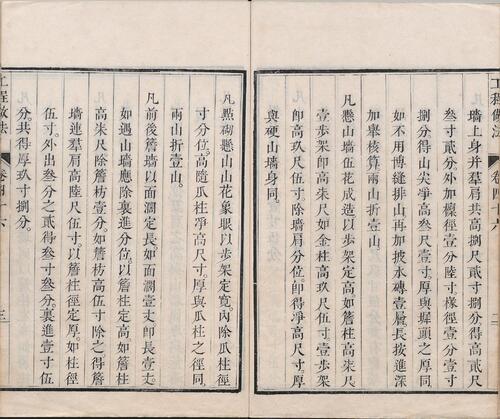 工程做法
卷四十六
二
墻上身并羣肩共高捌尺貳寸捌分得高貳尺
叁寸貳分外加檁徑壹分陸寸椽徑壹分壹寸
捌分得山尖爭高叁尺壹寸厚與墀頭之厚同
如不用博縫排山再加披水磚壹層長按進深
加舉核算兩山折壹山
凡懸山墻伍花成造以步架定高如簷柱高柒尺
壹步架即高柒尺如金柱高玖尺伍寸壹步架
即高玖尺伍寸除墻肩分位即得凈高尺寸厚
與硬山墻身同
凡㸃砌懸山山花象眼以步架定寬內除瓜柱徑
寸分位高隨瓜柱凈高尺寸厚與瓜柱之徑同
兩山折壹山。
凡前後簷墻以面濶定長如面濶壹丈即長壹丈
如遇山墻應除裏進分位以簷柱定高如簷柱
高柒尺除簷枋壹分如簷枋高伍寸除之得簷
墻連羣肩高陸尺伍寸。以簷柱徑定厚。如柱徑
伍寸。外出叁分之貳得叁寸叁分。裏進壹寸伍
分。共得厚玖寸捌分。
工程做法
卷四十六
三